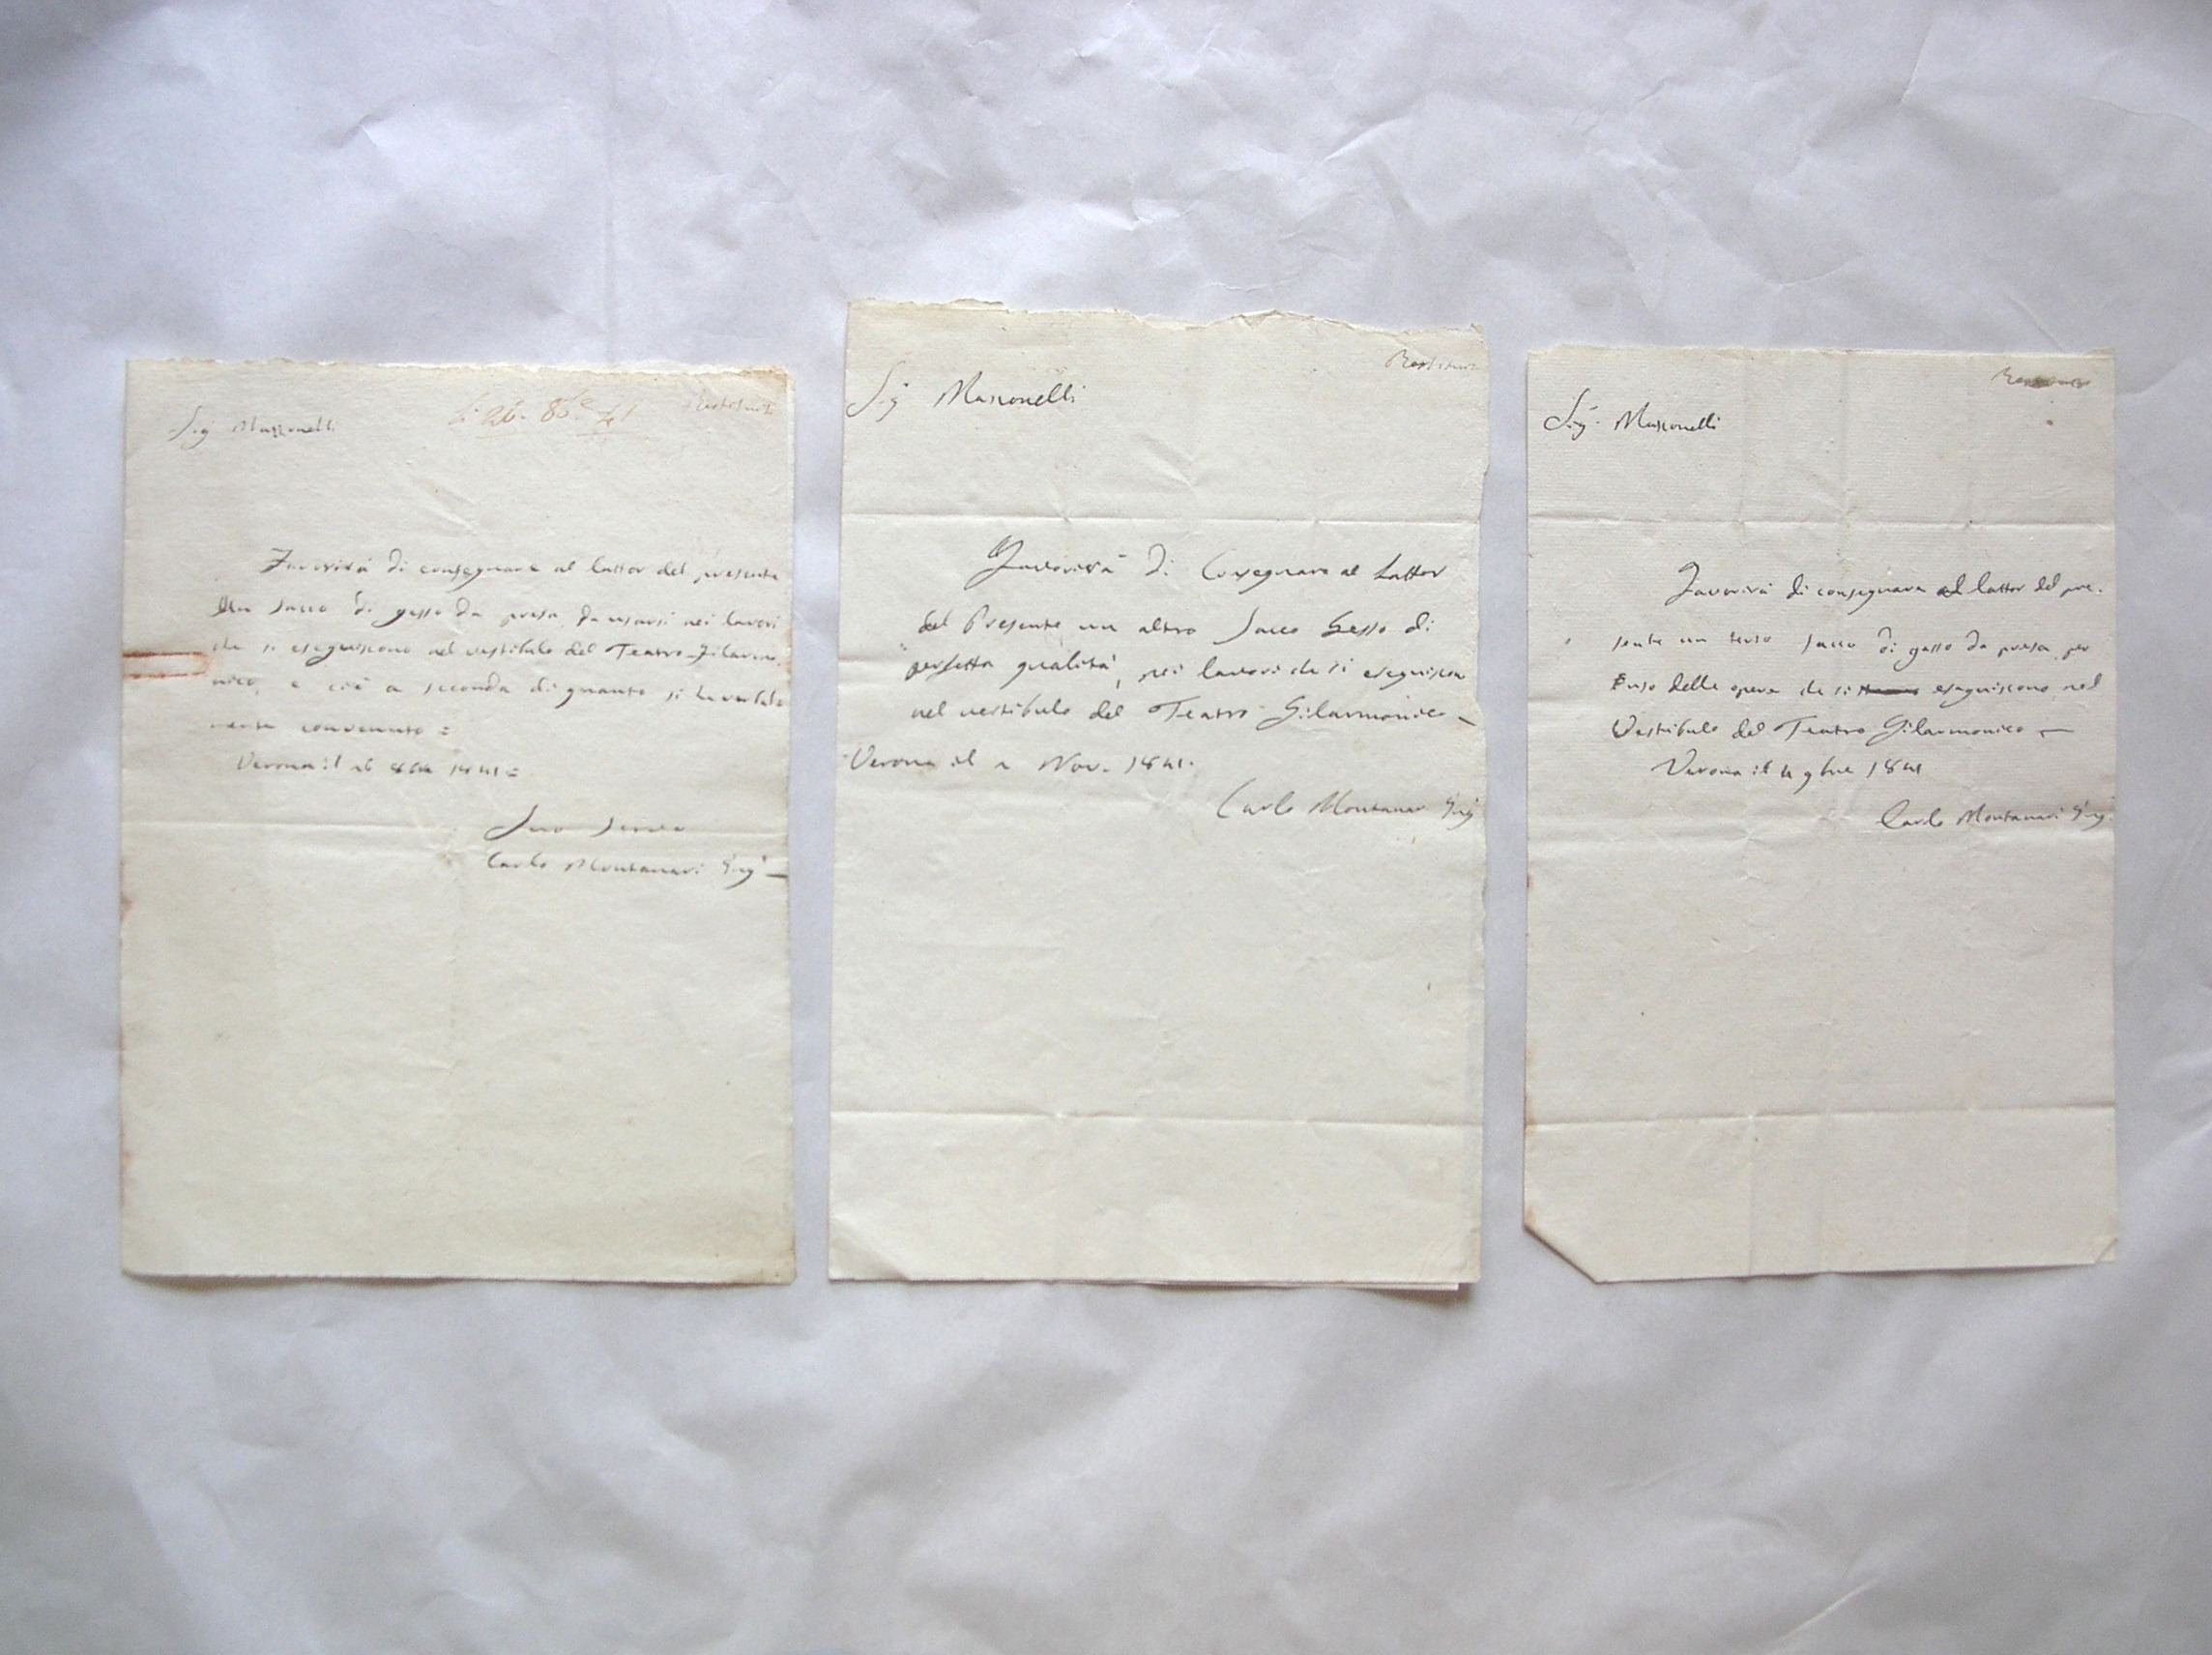 Sig Mazzonelli
Favorirà di consegnare al lattor del presente
Un sacco di gesso da presa, da usarsi nei lavori
che si eseguiscono nel vestibulo del Teatro Filarmo
nico, e ciò a seconda di quanto si ha verbal
mente convenuto =
Verona il 26 1841 =
Suo Servo
Carlo Montanari Ing
Sig Mazzonelli
Favorirà di Consegnare al Lattor
del Presente un altro sacco Gesso di
perfetta qualità, pei lavori che si eseguiscon
nel vestibulo del Teatro Filarmonico –
Verona il 2 Nov. 1841.
Carlo Montanari Ing
Sig. Mazzonelli
Favorirà di consegnare al lattor del pre-
sente un terzo sacco di gesso da presa per
uso delle opere che si eseguiscono nel
Vestibulo del Teatro Filarmonico –
Verona il 4 9bre 1841
Carlo Montanari Ing.